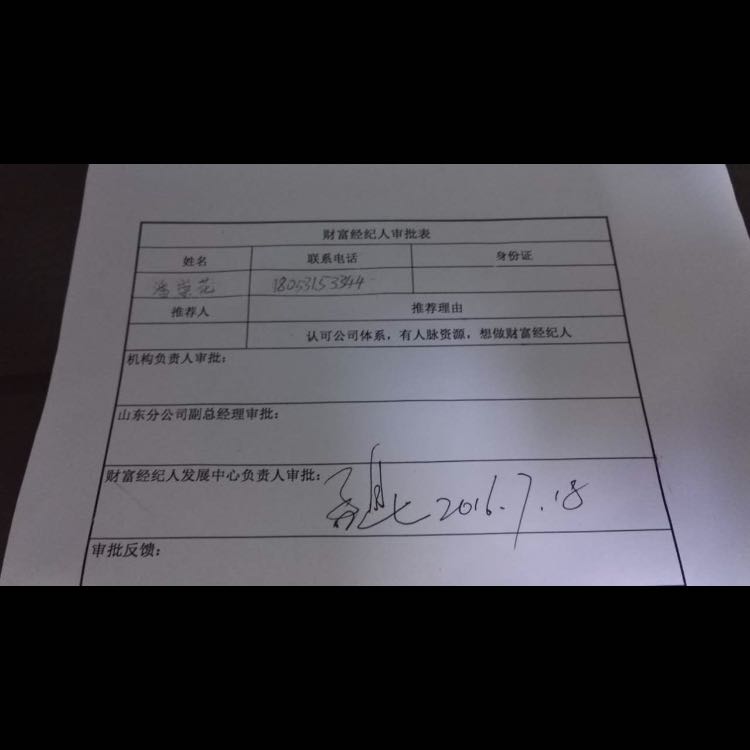 财富经纪人审批表
姓名 联系电话 身份证
18053153344
推荐人 推荐理由
认可公司体系，有人脉资源，想做财富经纪人
机构负责人审批：
山东分公司副总经理审批：
财富经纪人发展中心负责人审批：
2016.7.18
审批反馈：